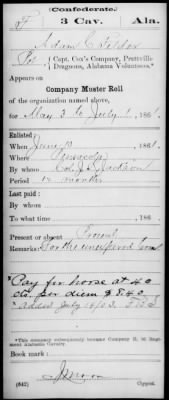 (Confederate.)
F 3 Cav. Ala.
Adam C Felder
Pvt Capt. Cox's Company, Prattville
Dragoons, Alabama Volunteers.*
Appears on
Company Muster Roll
of the organization named above,
for May 3 to July 1, 1861.
Enlisted:
When June 10, 1861.
Where Pensacola
By whom Col. J. Jackson
Period 12 months
Last paid:
By whom
To what time , 186 .
Present or absent Present
Remarks: For the unexpired term
Pay for horse at 40
cts. per diem $
*This company subsequently became Company H, 3d Regiment Alabama Cavalry.
Book mark:
(642) Copyist.